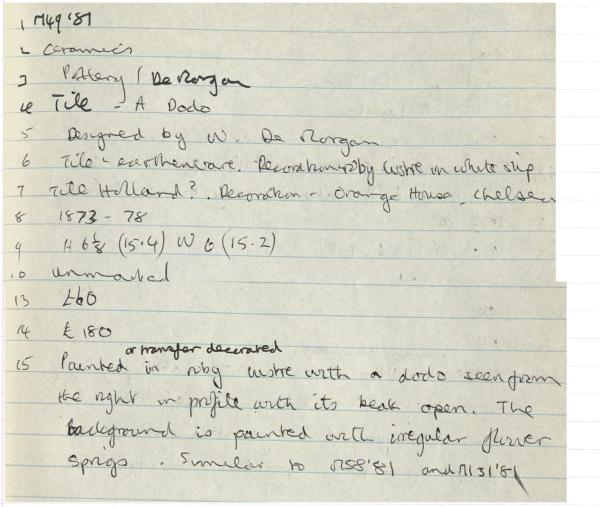 1 M49 '81
2 Ceramics
3 Pottery / De Morgan
4 Tile - A Dodo
5 Designed by W. De Morgan
6 Tile - earthenware. Decoration ruby lustre on white slip
7 Tile Holland?. Decoration - Orange House, Chelsea
8 1873 - 78
9 H 6 1/8 (15.4) W 6 (15.2)
10 unmarked
13 £60
14 £180
or transfer decorated
15 Painted in ruby lustre with a dodo seen from
the right in profile with its beak open. The
background is painted with irregular flower
sprigs. Similar to M58 '81 and M131 '81